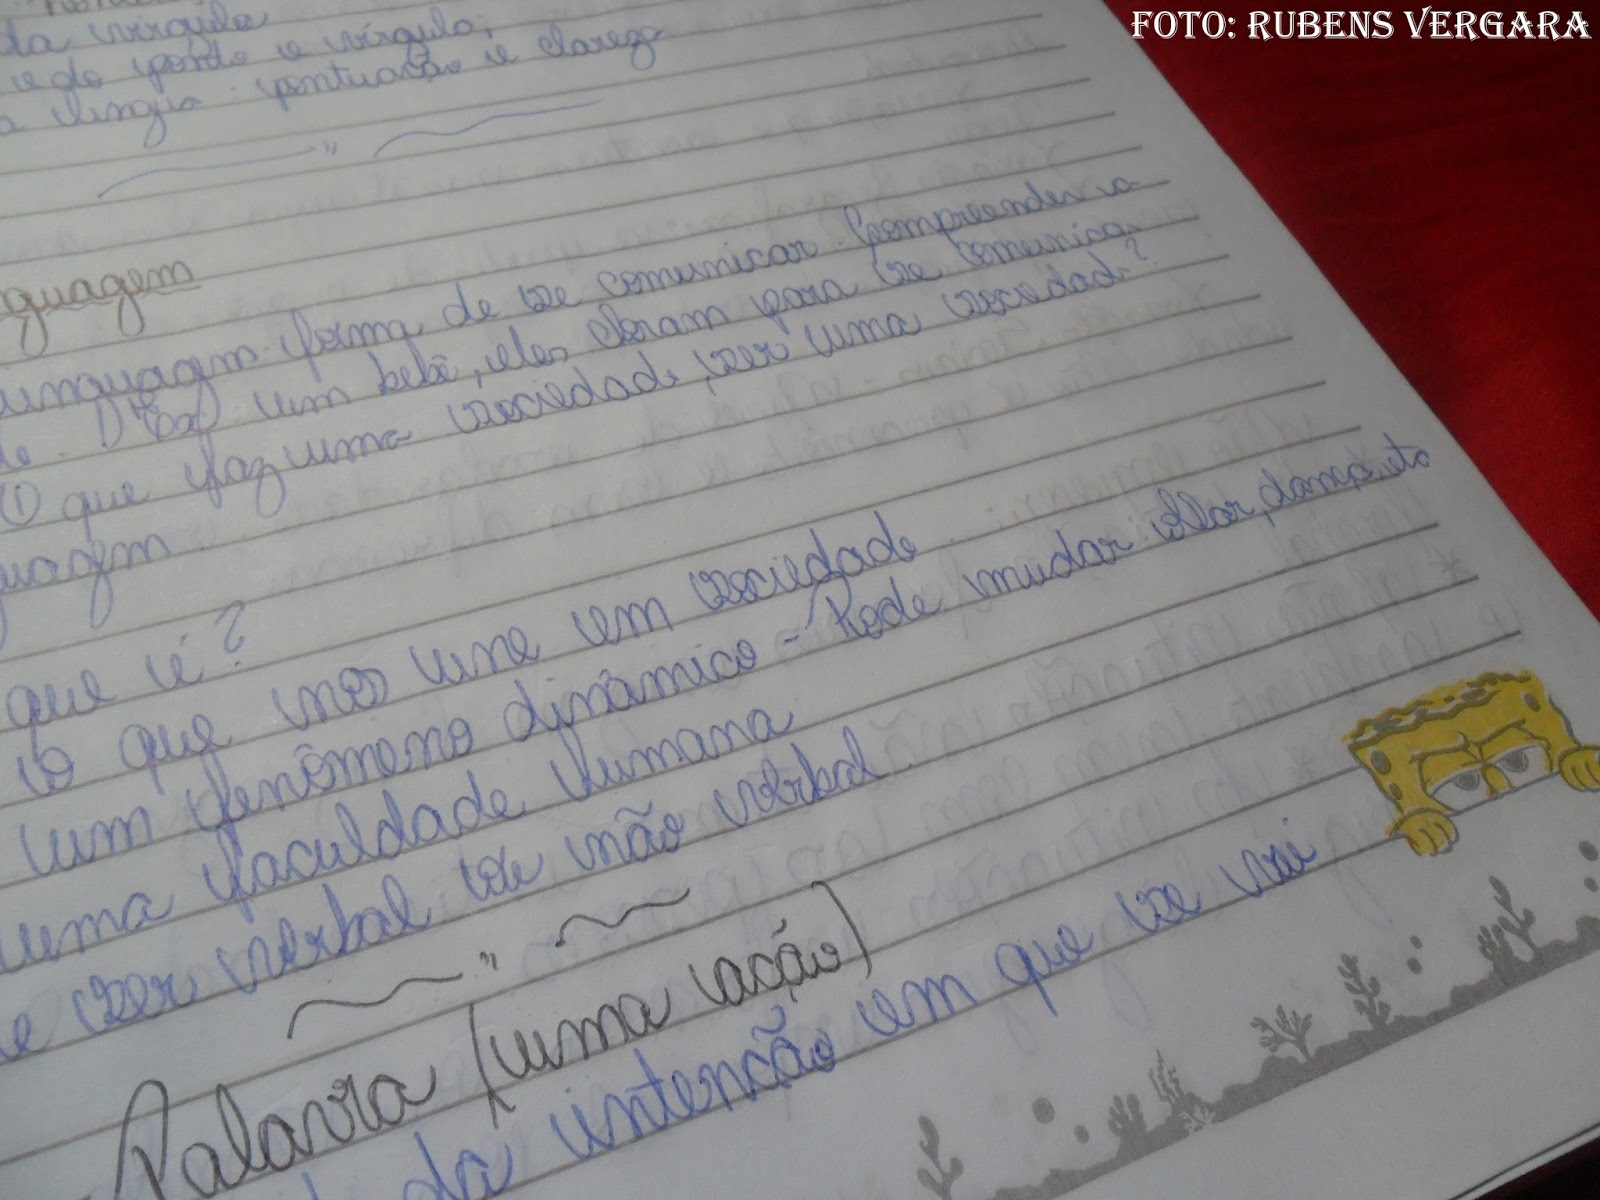 FOTO: RUBENS VERGARA
da vírgula
e do ponto e vírgula;
a língua: pontuação e clareza
nguagem
linguagem-forma de se comunicar. Compreender a
de. 1) Ex) um bebê, eles choram para se comunica.
① que faz uma sociedade, ser uma sociedade?
uagem
que é?
o que nos une em sociedade
um fenômeno dinâmico - Pode mudar: olhar, dança, etc
uma faculdade humana
e ser verbal e não verbal
Palavra (uma ação)
da intenção em que se vai